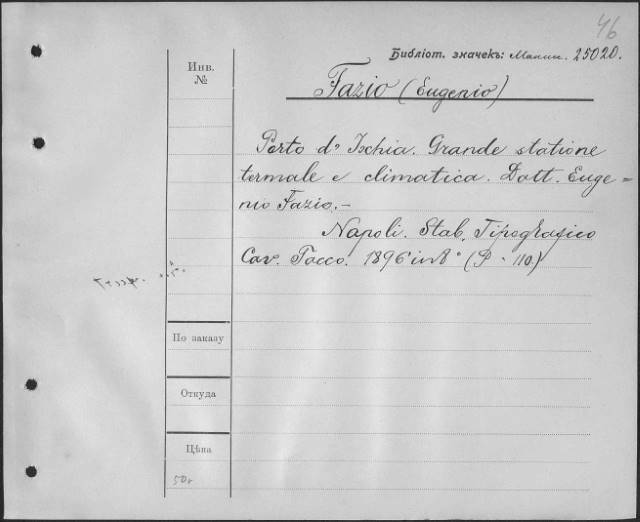 46
Библіот. значекъ: Манин. 25020.
Инв.
№
Fazio (Eugenio)
Porto d' Ischia. Grande statione
termale e climatica. Dott. Euge=
nio Fazio. –
Napoli. Stab. Tipografico
Cav. Tocco. 1896 in 8° (P. 110.)
По заказу
Откуда
Цѣна
50